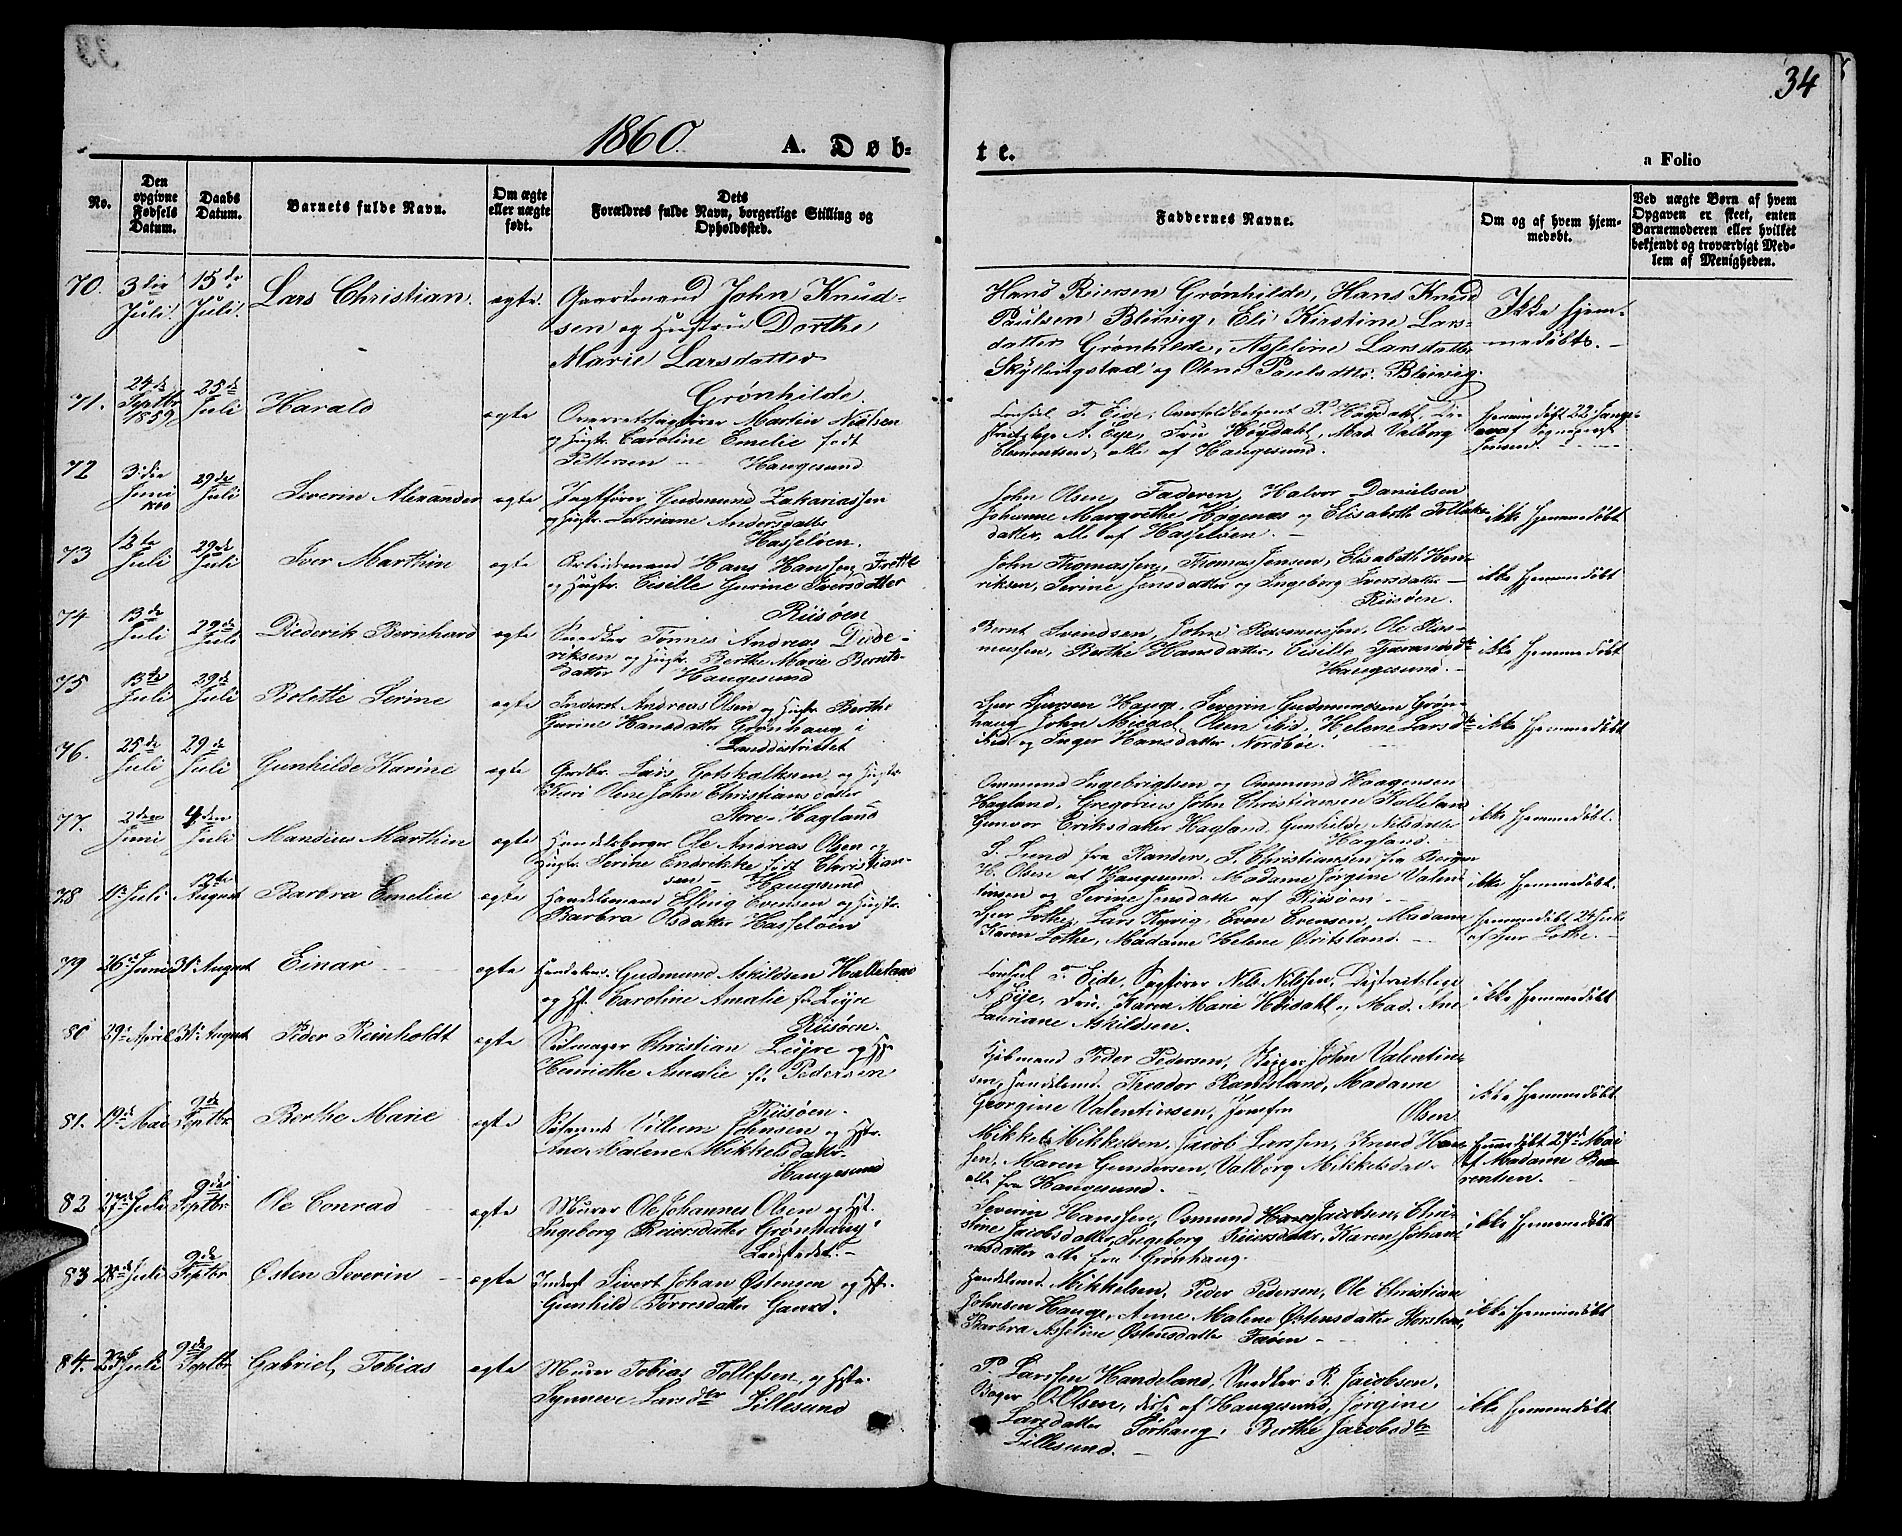 34
1860.
A. Døb=
te.
a Folio
No.
Den
opgivne
Fødsels
Datum.
Daabs
Datum.
Barnets fulde Navn.
Om ægte
eller uægte
født.
Dets
Forældres fulde Navn, borgerlige Stilling og
Opholdssted.
Faddernes Navne.
Om og af hvem hjem-
medøbt.
Ved uægte Børn af hvem
Opgaven er skeet, enten
Barnemoderen eller hvilket
bekjendt og troværdigt Med-
lem af Menigheden.
70.
3die
Juli.
15de
Juli.
Lars Christian.
ægte.
Gaardmand John Knud-
sen og Hustru Dorthe
Marie Larsdatter
Grønhilde.
Hans Riersen Grønhilde, Hans Knud
Paulsen Bleivig, Eli Kirstine Lars-
datter Grønhilde, Asseline Larsdatter
Skyllingstad og Oline Paulsdttr. Bleivig.
Ikke hjem-
medøbt.
71.
24de
Septbr
1859
25de
Juli
Harald
ægte
Overretssagfører Martin Nielsen
og Hustr. Caroline Emelie født
Pettersen Haugesund
Consul T. Eide, P. Høydahl, Di-
striktslæge A. Eye, Fru Høydahl, Mad. Valborg
Clementsen, alle af Haugesund.
hjemmedøbt 22
af
72
3die
Juni
1860
29de
Juli
Severin Alexander
ægte
Jagtfører Gudmund Zakariassen
og Hustr. Larsine Andersdatter
Hasseløen.
John Olsen, Faderen, Halvor Danielsen
Johanne Margrethe Høgenæs og Elisabeth
datter, alle af Hasseløen.
ikke hjemmedøbt
73
12te
Juli
29de
Juli
Iver Marthin
ægte
Arbeidsmand Hans Hanssen
og Hustr. Siselle Gurine Iversdatter
Risøen
John Thomassen, Thomas Jensen, Elisabeth Hen-
riksen, Serine Jensdatter og Ingeborg Iversdatter
Risøen.
ikke hjemmedøbt
74
13de
Juli
29de
Juli
Diederik Bernhard
ægte
Snedker Tønnes Andreas Diede-
riksen og Hustr. Berthe Marie Bernts-
datter Haugesund
Bernt Svendsen, John Rasmussen, Ole Ras-
mussen, Berthe Hansdatter, Siselle
Haugesund.
ikke hjemmedøbt
75
15de
Juli
29de
Juli
Bolette Serine
ægte
Inderst Andreas Olsen og Hustr. Berthe
Gurine Hansdatter Grønhaug i
Landdistriktet
Sjur Sjursen Hauge, Severin Gudmundsen Grøn-
haug, John Micael Olsen ibid, Helene Larsdtr
ibid. og Inger Hansdatter Nordbøe.
ikke hjemmedøbt
76.
25de
Juli
29de
Juli
Gunhilde Karine
ægte
Gardbr. Lars Gotskalksen og Hustr.
Siri Olene John Christiansdatter
Store-Hagland
Ommund Ingebrigtsen og Ommund Haagensen
Hagland, Gregorius John Christiansen Kalleland
Gunvor Eriksdatter Hagland, Gunhilde Nilsdatter
Hagland.
ikke hjemmedøbt.
77.
2den
Juni
4den
Juli
Mandius Marthin
ægte
Handelsborger Ole Andreas Olsen og
Hustr. Serine Endrekke født Christian-
sen Haugesund
S. Lund fra Randers, S. Christiansen fra Bergen
H. Olsen af Haugesund, Madame Jørgine Valen-
tinsen og Serine Jensdatter af Risøen.
ikke hjemmedøbt.
78
9de Juli
12te
August
Barbra Emelie
ægte
Handelsmand Elling Evensen og Hustr.
Barbra Olsdatter Hasseløen
Sjur Lothe, Lars Kyvig, Even Evensen, Madame
Karen Lothe, Madame Helene Qvitsland.
hjemmedøbt 24 Juli
af Sjur Lothe.
79
26de Juni
31te August
Einar
ægte
Handelsm. Gudmund Askildsen Halleland
og Hst. Caroline Amalie f. Leyre
Risøen.
Consul T. Eide, Sagfører Nils Nilssen, Distriktslæge
A. Eye, Fru Karen Marie Høidahl og Mad. Ane
Lauriane Askildsen.
ikke hjemmedøbt
80
29de April
31te August
Peder Reinholdt
ægte
Seilmager Christian Leyre og Hst.
Henriethe Amalie f. Pedersen
Risøen.
Kjøbmand Peder Pedersen, Skipper John Valentin-
sen, Handelsmd. Theodor Randsland, Madame
Georgine Valentinsen, Jomfru Olsen
ikke hjemmedøbt
81.
19de Mai
9de
Septbr
Berthe Marie
ægte
Villum Johnsen og Hstr.
Ane Malene Mikkelsdatter
Haugesund
Mikkel Mikkelsen, Jacob Larssen, Knud Han-
sen, Maren Gundersen, Valborg Mikkelsdat-
alle fra Haugesund.
hjemmedøbt 29de Mai
af Madame Be-
rentsen.
82
27de Juli
9de
Septbr
Ole Conrad
ægte
Murer Ole Johannes Olsen og Hst.
Ingeborg Reiersdatter Grønhaug
Landstedet.
Severin Hanssen, Osmund Jacobsen, Chri-
stine Jacobsdatter, Ingeborg Reiersdatter, Karen Johan-
nesdatter alle fra Grønhaug.
ikke hjemmedøbt
83
28de Juli
9de
Septbr
Østen Severin
ægte
Inderst Sivert Johan Østensen og Hst.
Gunhild Torresdatter Gaard.
Handelsmd. Mikkelsen, Peder Pedersen, Ole Christian
Johnsen Hauge, Anne Malene Østensdatter
Barbra Asseline Østensdatter Faøen
ikke hjemmedøbt
84.
Juli
9de
Septbr
Gabriel Tobias
ægte
Murer Tobias Tollefsen og Hstr.
Synneve Larsdtr Lillesund
P. Larssen Handeland, Snedker R. Jacobsen,
Bager O. Olsen, disse af Haugesund, Jørgine
Larsdatter Sørhaug, Berthe Jacobsdtr
Lillesund.
ikke hjemmedøbt